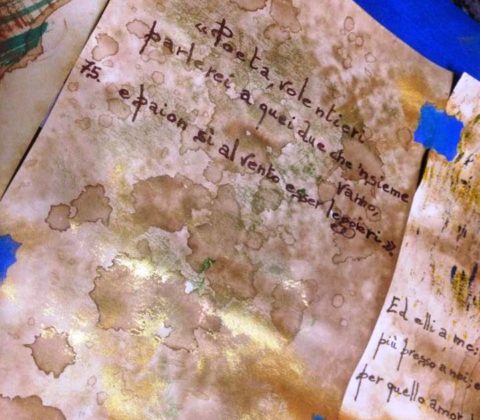 «Poeta, volentieri
parlerei a quei due che 'nsieme
vanno,
75.
e paion sì al vento esser leggieri».
Ed elli a me:
più presso a noi; e
per quello amor